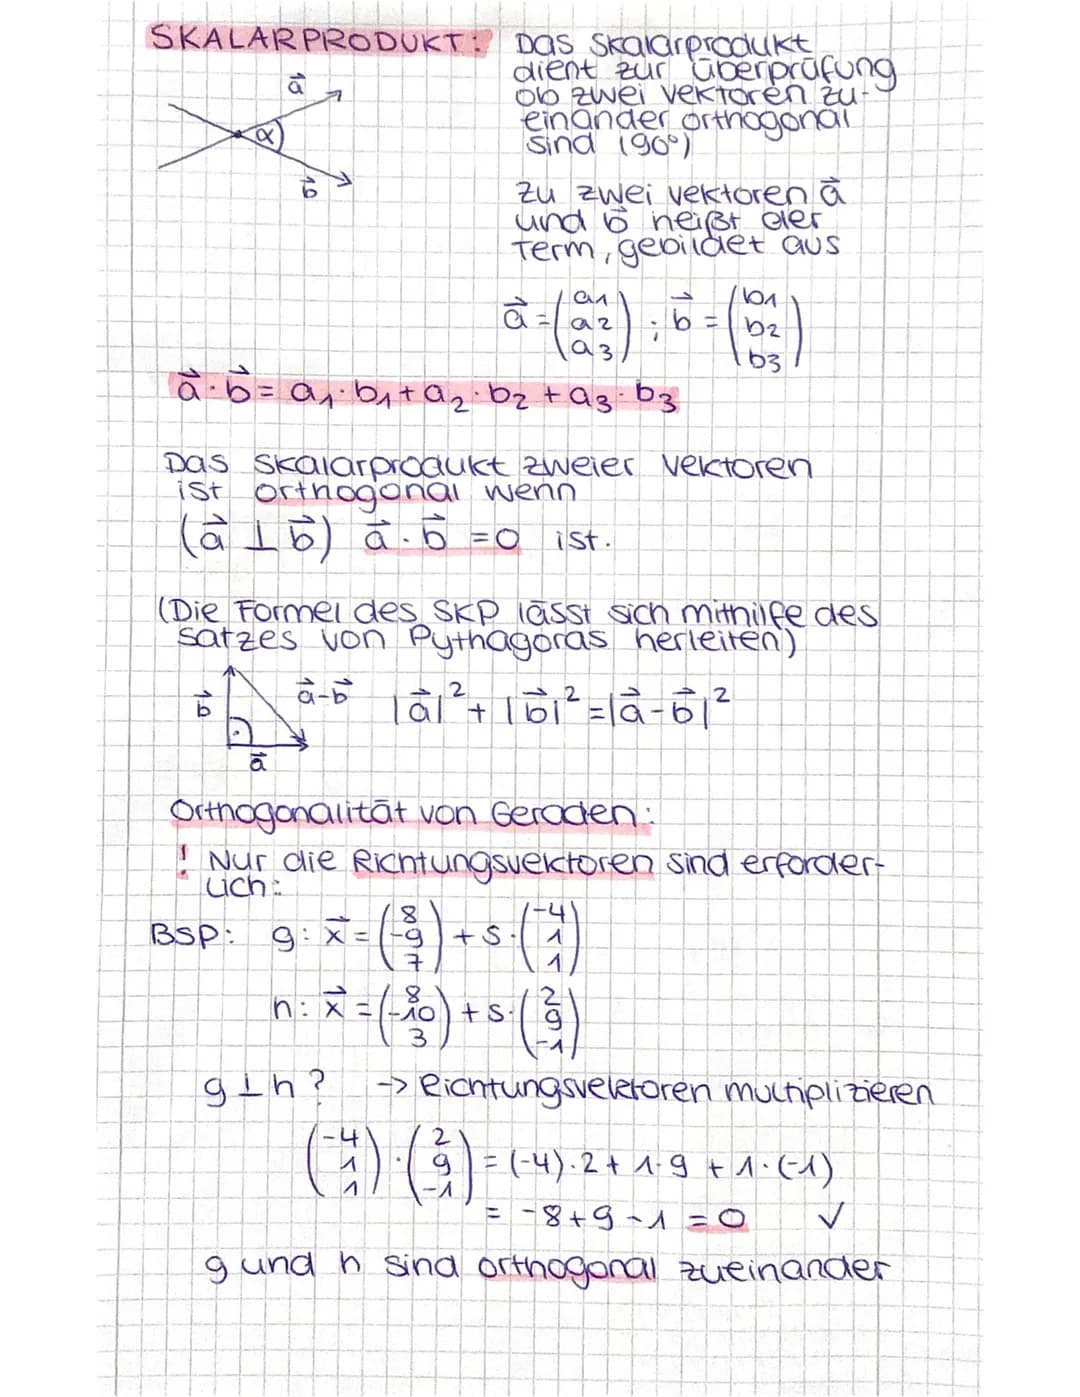 SKALARPRODUKT: Das Skalarprodukt
dient zur Überprüfung
ob zwei Vektoren zu-
einander orthogonal
sind (90°)
a⃗
α
b⃗
zu zwei Vektoren a⃗
und b⃗ heißt der
Term, gebildet aus
a⃗ = (a1 a2 a3) ; b⃗ = (b1 b2 b3)
a⃗ · b⃗ = a₁ · b₁ + a₂ · b₂ + a₃ · b₃
Das Skalarprodukt zweier Vektoren
ist orthogonal wenn
(a⃗ ⊥ b⃗) a⃗ · b⃗ = 0 ist.
(Die Formel des SKP lässt sich mithilfe des
Satzes von Pythagoras herleiten)
b⃗ a⃗-b⃗ |a⃗|² + |b⃗|² = |a⃗ - b⃗|²
a⃗
Orthogonalität von Geraden:
! Nur die Richtungsvektoren sind erforder-
lich:
BSP: g: x⃗ = (8 -9 7) + s · (-4 1 1)
h: x⃗ = (8 -10 3) + s · (2 9 -1)
g ⊥ h? -> Richtungsvektoren multiplizieren
(-4 1 1) · (2 9 -1) = (-4) · 2 + 1 · 9 + 1 · (-1)
= -8 + 9 - 1 = 0 ✓
g und h sind orthogonal zueinander